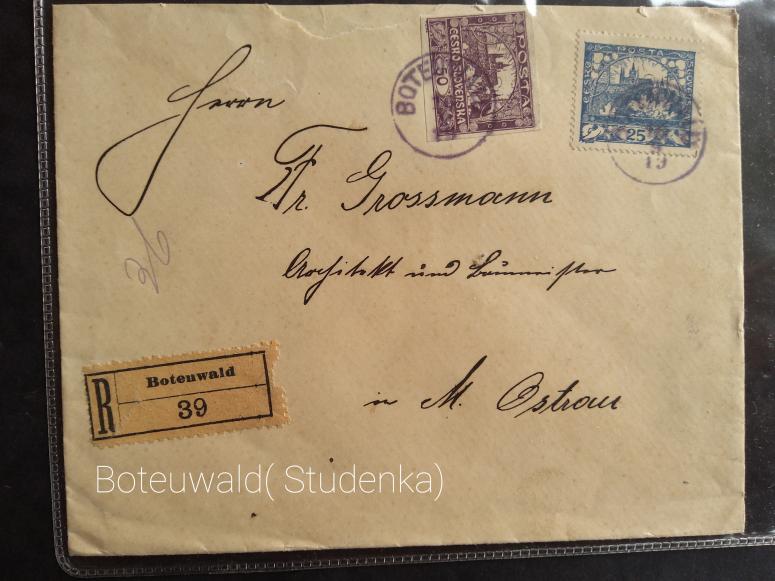 POSTA
ČESKO-SLOVENSKA
50
POSTA
ČESKO
SLOVENSKÁ
25
BOTE
19
Herrn
Fr. Grossmann
Architekt und Baumeister
in M. Ostrau
36
R
Boteuwald
39
Boteuwald( Studenka)